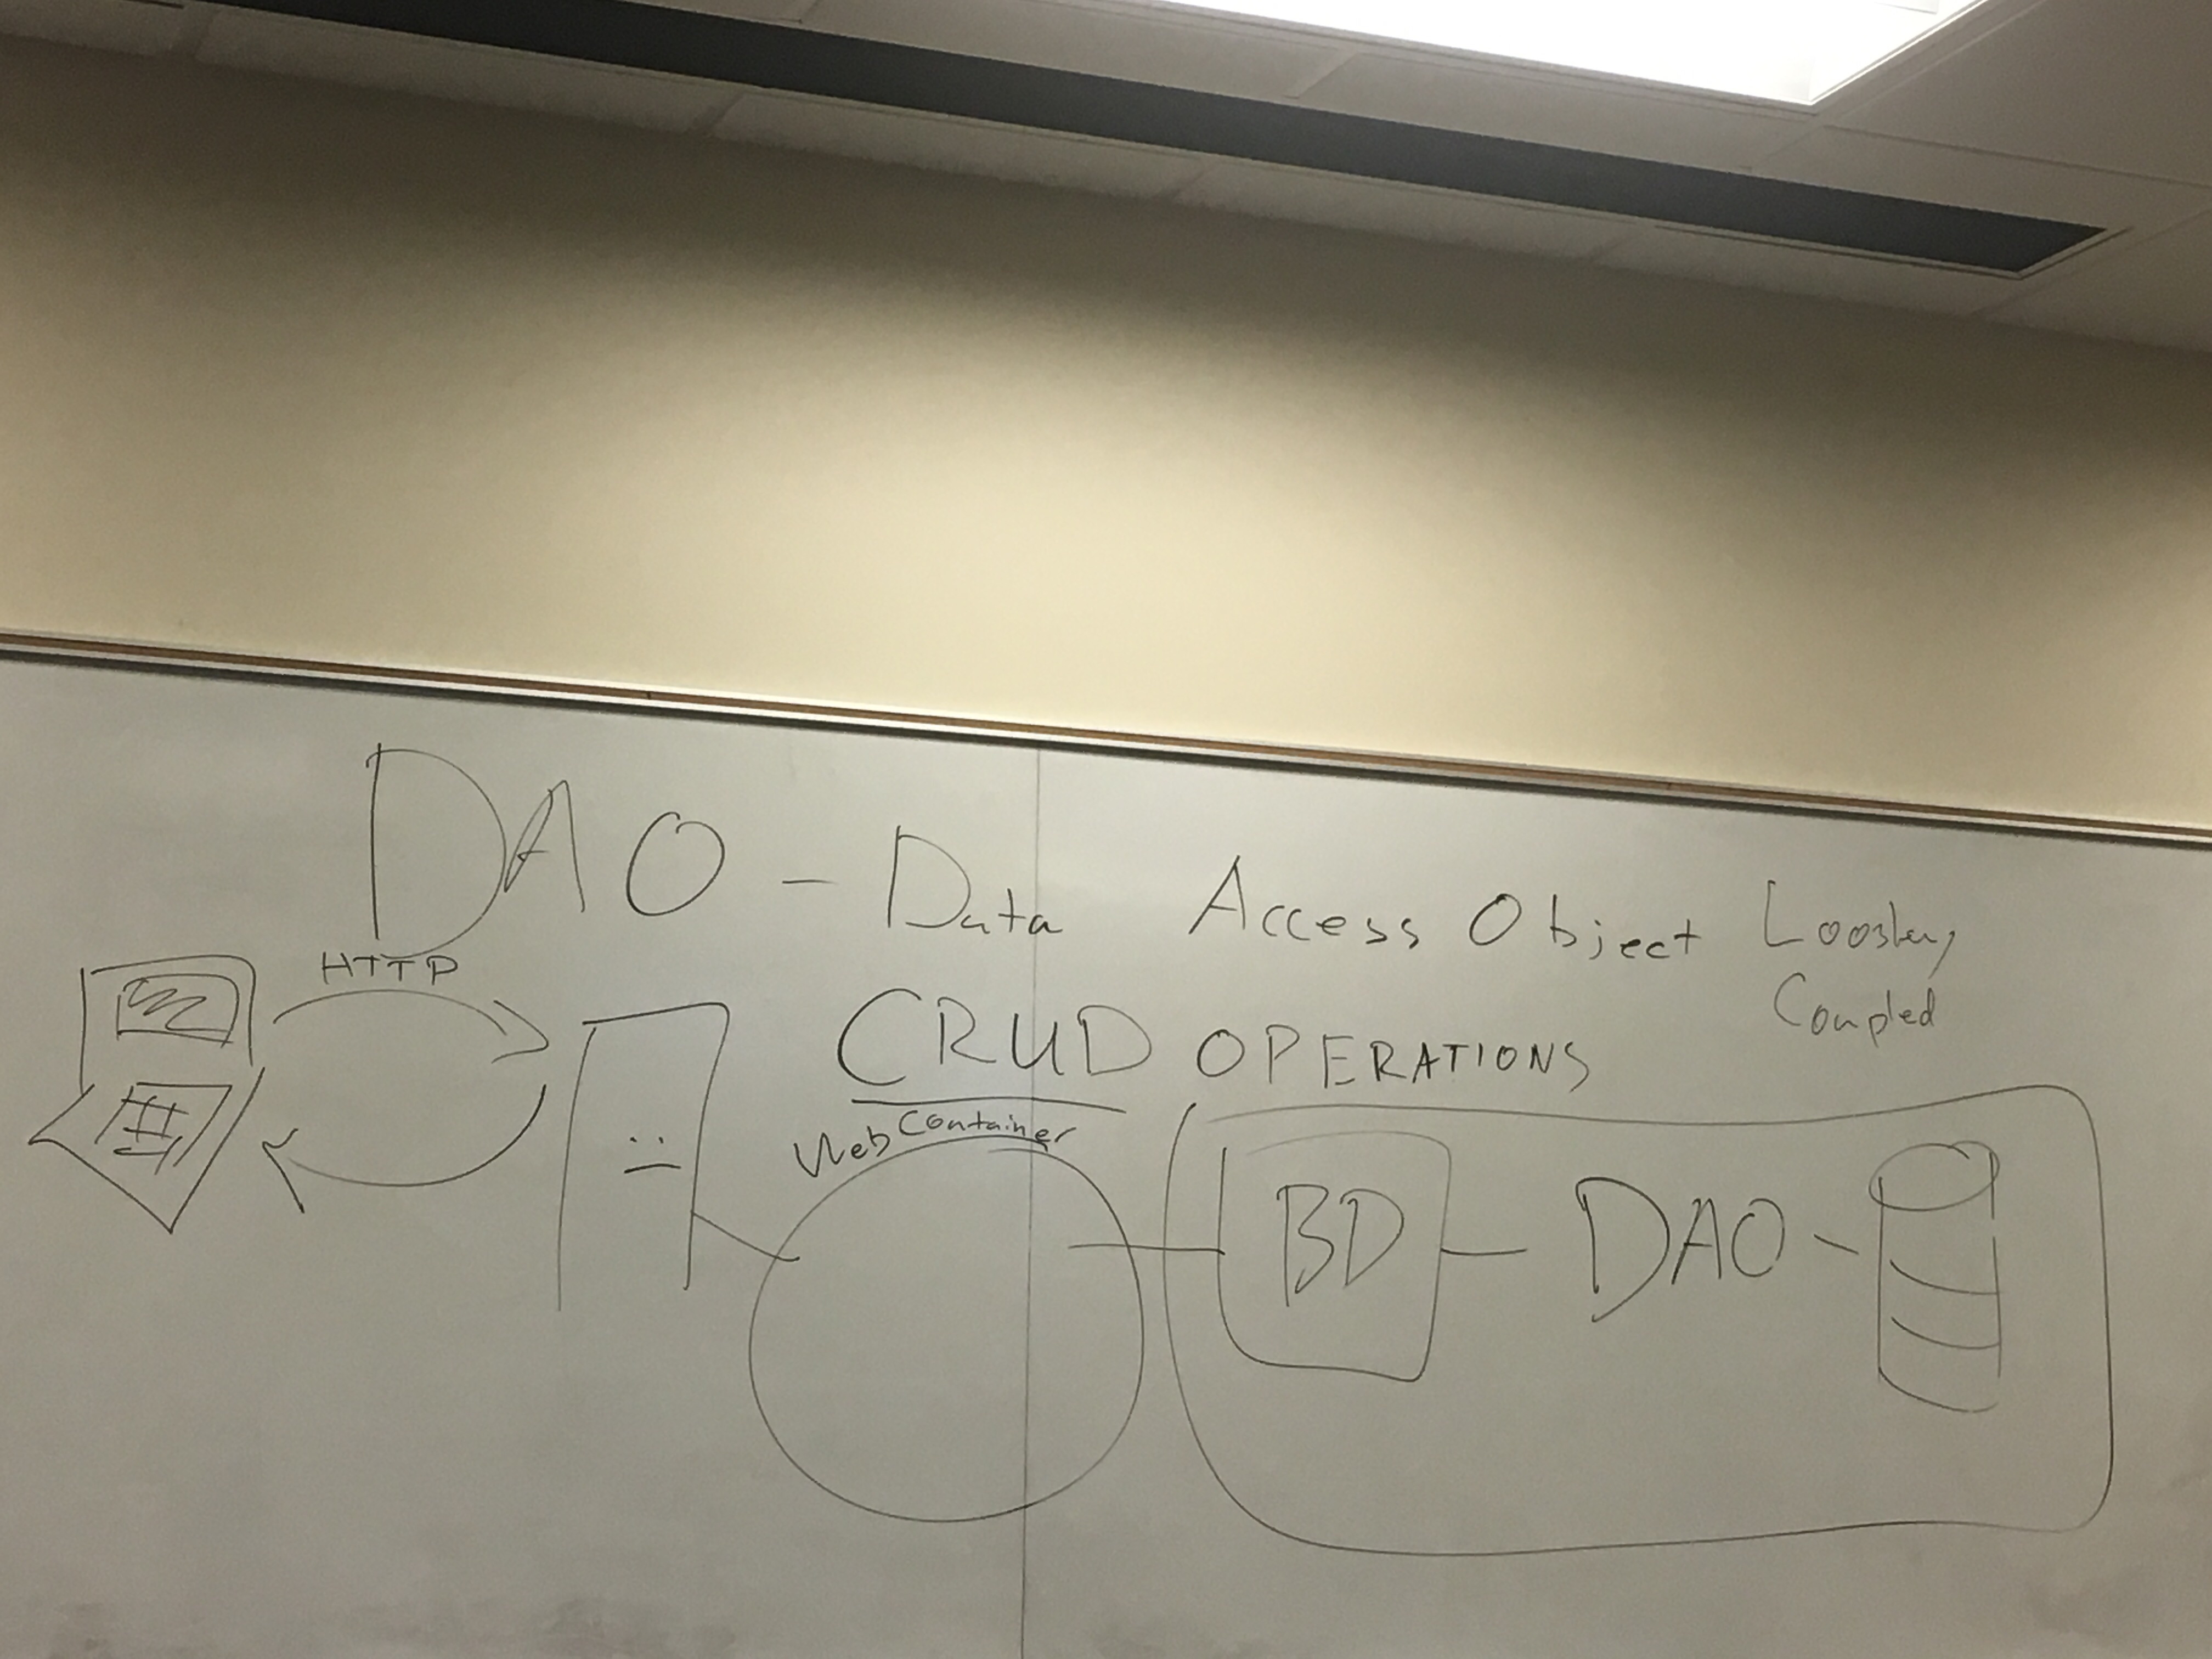 DAO - Data Access Object Loosley
Coupled
HTTP
CRUD OPERATIONS
Web Container
BD
DAO